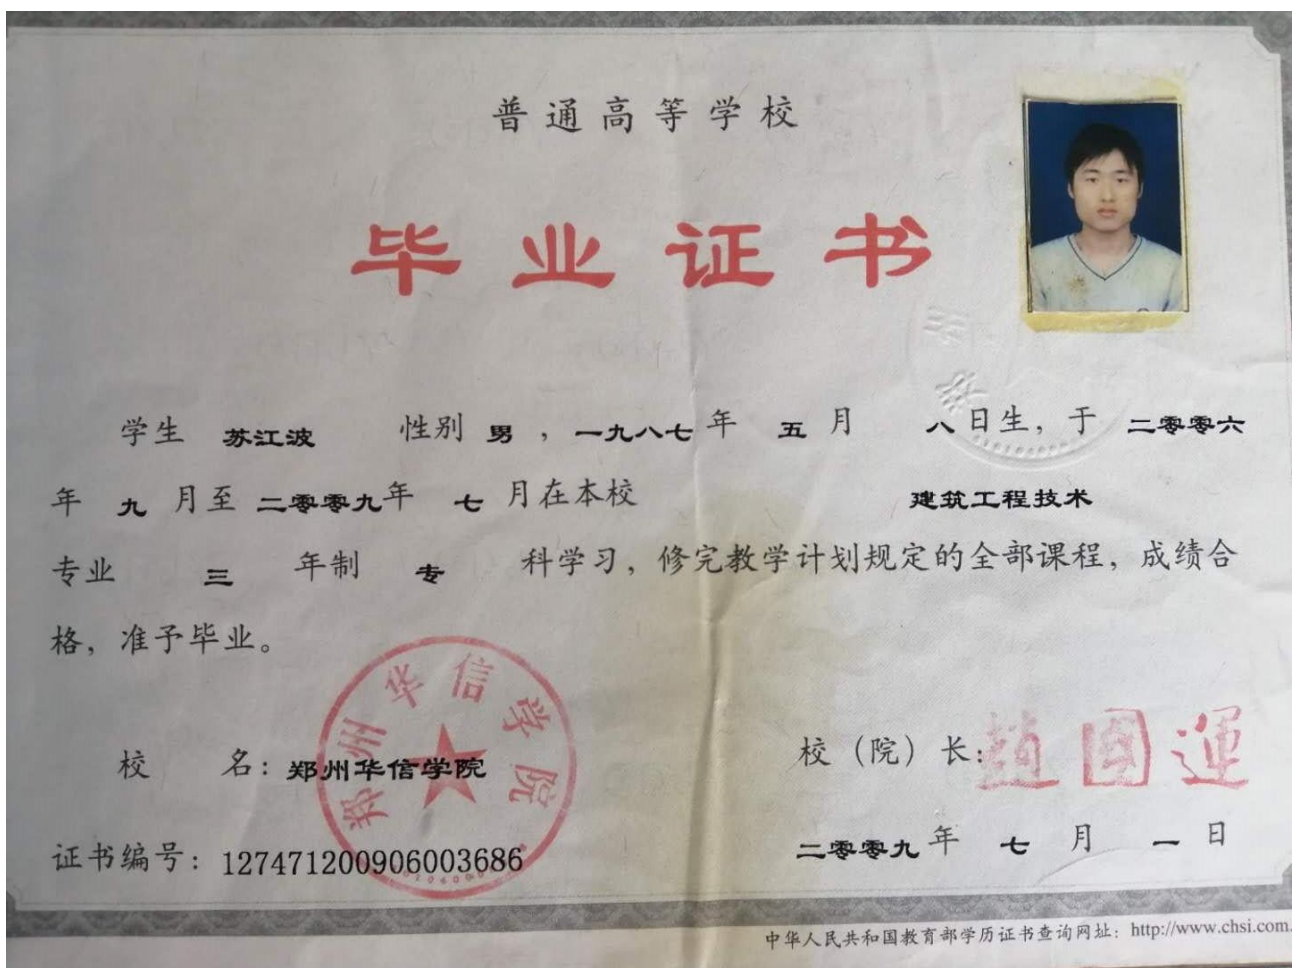 普通高等学校
毕业证书
学生 苏江波 性别 男 ，一九八七 年 五 月 八 日生，于 二零零六
年 九 月至 二零零九 年 七 月在本校 建筑工程技术
专业 三 年制 专 科学习，修完教学计划规定的全部课程，成绩合
格，准予毕业。
郑州华信学院
校 名：郑州华信学院
校（院）长：趙國運
证书编号：127471200906003686
二零零九 年 七 月 一 日
中华人民共和国教育部学历证书查询网址：http://www.chsi.com.